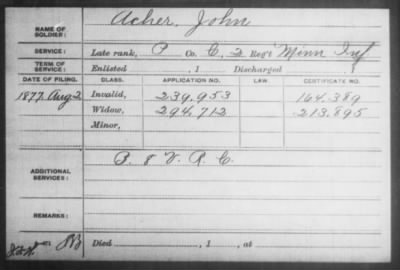 NAME OF SOLDIER: Acher, John
SERVICE: Late rank, P Co. C, 2 Reg't Minn Inf
TERM OF SERVICE: Enlisted , 1 Discharged
DATE OF FILING. CLASS. APPLICATION NO. LAW. CERTIFICATE NO.
1877 Aug 2 Invalid, 239,953 164,389
Widow, 294,712 213,895
Minor,
ADDITIONAL SERVICES: B. 8 V. R. C.
REMARKS:
Died , 1 , at